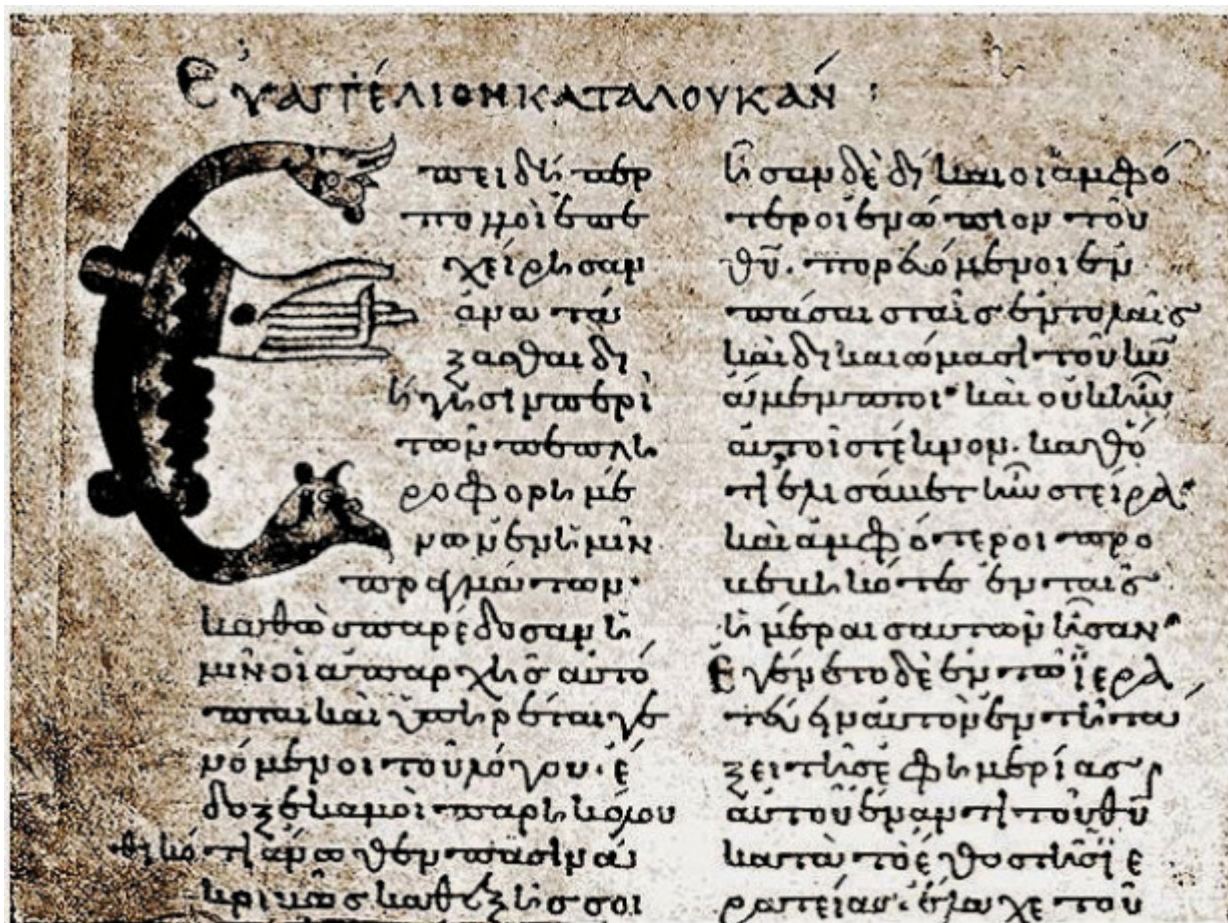 Εὐαγγέλιον κατὰ Λουκάν :
Ἐπειδήπερ
πολλοὶ ἐπε
χείρησαν
ἀνατά
ξασθαι δι
ήγησιν περὶ
τῶν πεπλη
ροφορημέ
νων ἐν ἡμῖν
πραγμάτων·
καθὼς παρέδοσαν ἡ
μῖν οἱ ἀπαρχῆς αὐτό
πται καὶ ὑπηρέται γε
νόμενοι τοῦ λόγου· ἔ
δοξε καμοὶ παρηκολου
θηκότι ἄνωθεν πᾶσιν ἀ
κριβῶς καθεξῆς σοι
ἦσαν δὲ δίκαιοι ἀμφό
τεροι ἐνώπιον τοῦ
θῦ· πορευόμενοι ἐν
πάσαις ταῖς ἐντολαῖς
καὶ δικαιώμασι τοῦ κῦ
ἄμεμπτοι· καὶ οὐκ ἦν
αὐτοῖς τέκνον· καθό
τι ἡ ἐλισάβετ ἦν στείρα·
καὶ ἀμφότεροι προ
βεβηκότες ἐν ταῖς
ἡμέραις αυτῶν ἦσαν·
Ἐγένετο δὲ ἐν τῶ ἱερα
τεύειν αὐτὸν ἐν τῆ τά
ξει τῆς ἐφημερίας
αὐτοῦ ἔναντι τοῦ θῦ
κατὰ τὸ ἔθος τῆς ἱε
ρατείας· ἔλαχε τοῦ